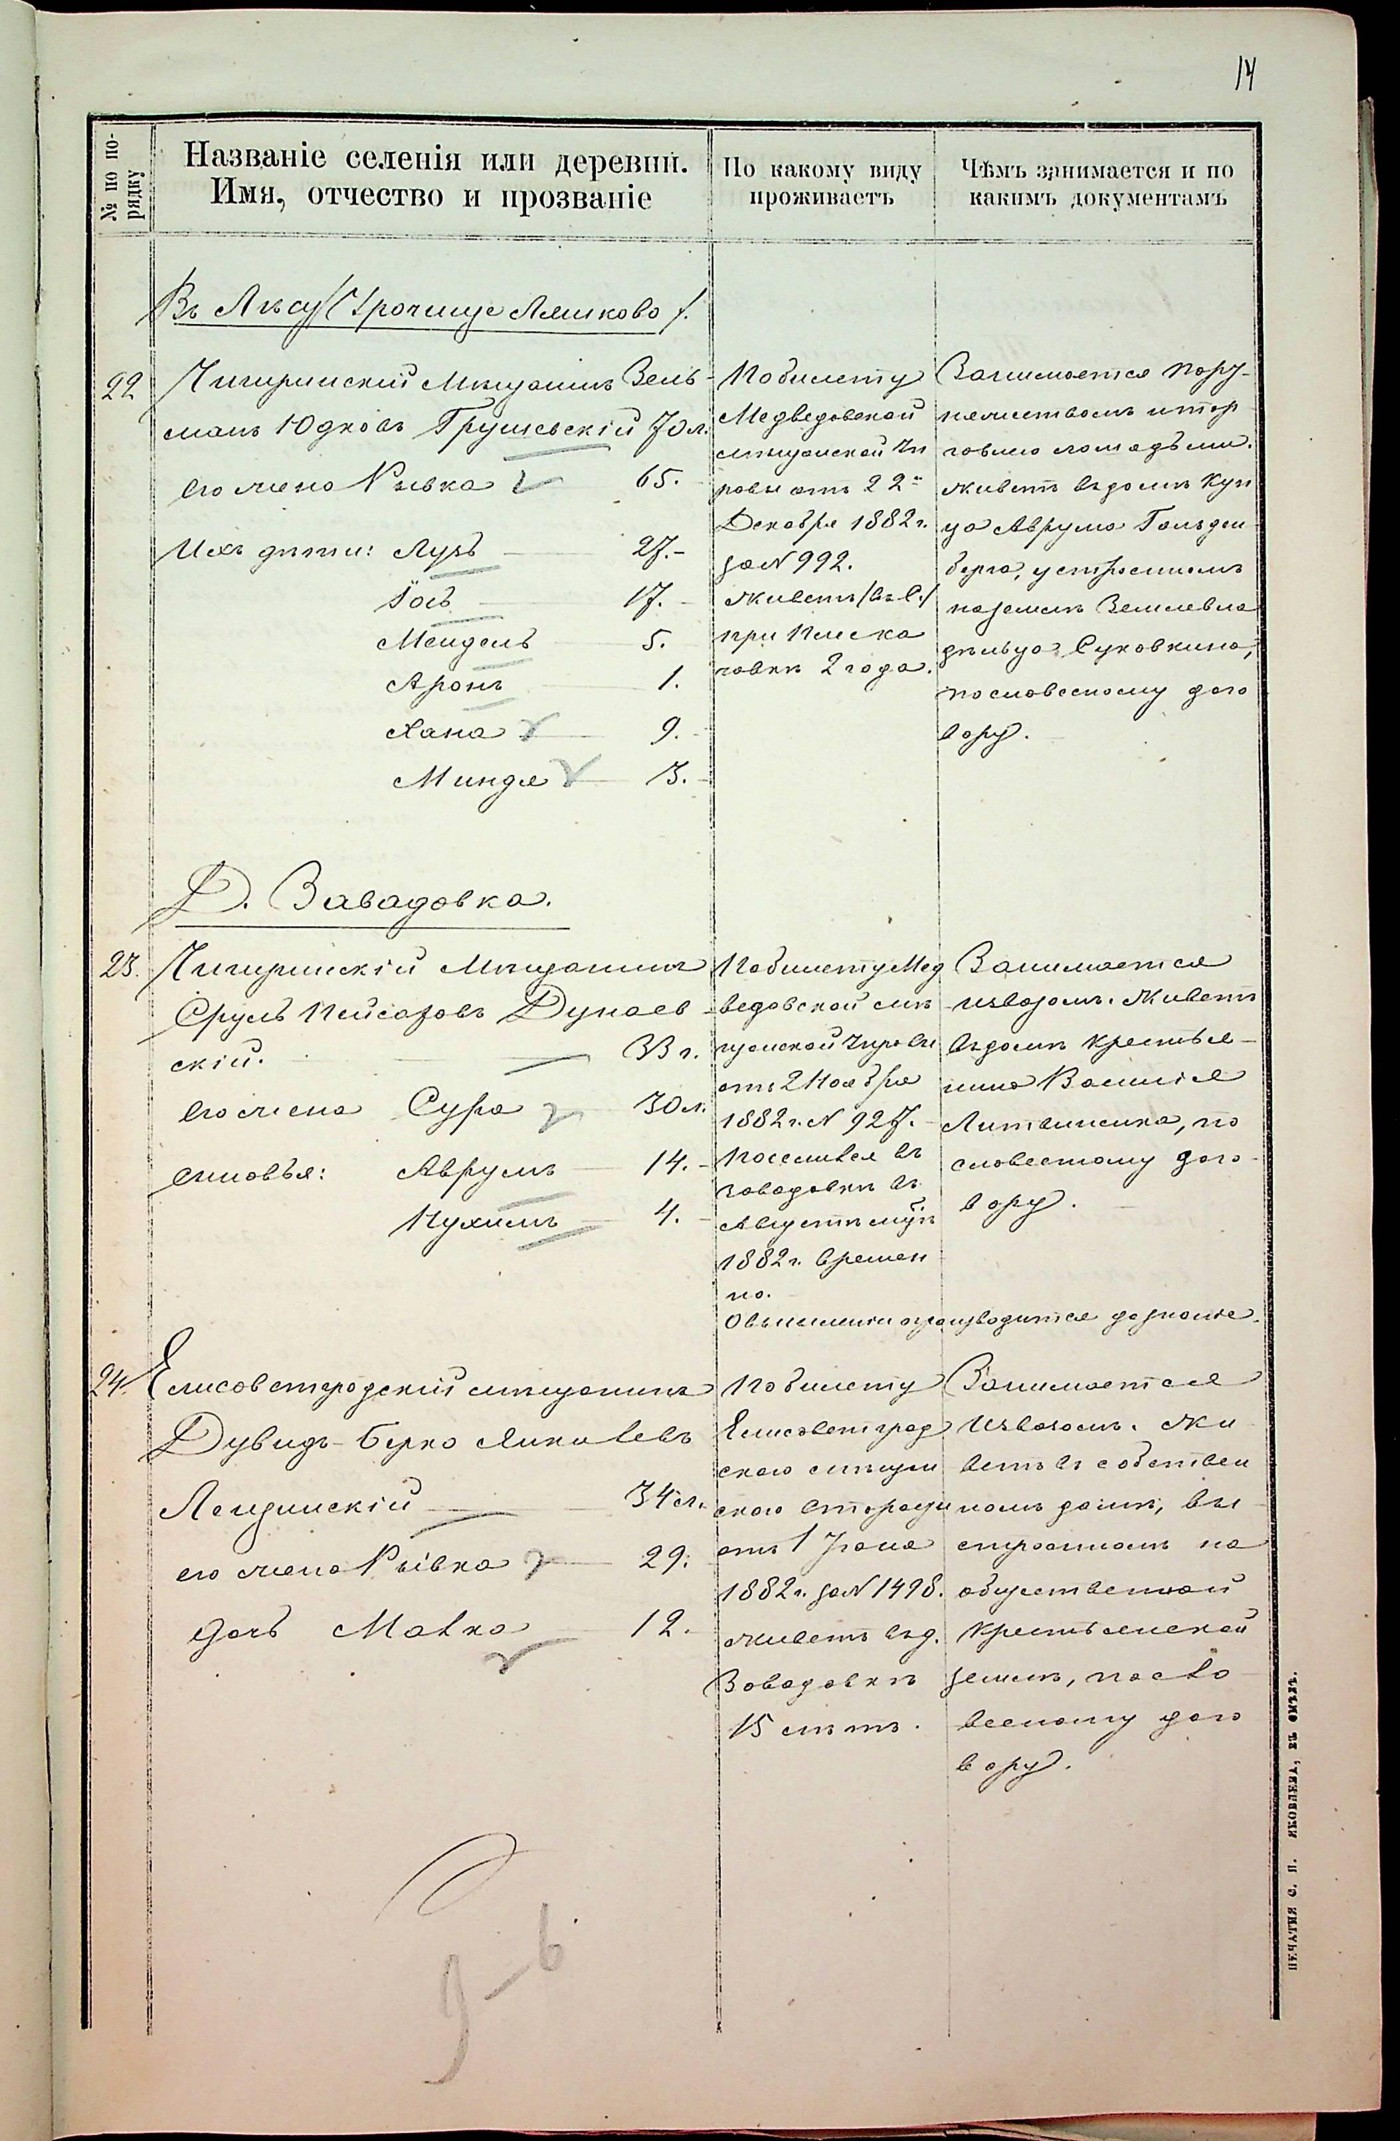 14
№ по по-
рядку
Названіе селенія или деревни.
Имя, отчество и прозваніе
По какому виду
проживаетъ
Чѣмъ занимается и по
какимъ документамъ
Въ Лѣсу (Урочище Ляшково).
22
Чигиринскій Мѣщанинъ Зель-
манъ Юдковъ Грушевскій 70 л.
его жена Рывка 65.
Ихъ дѣти: Лузъ 27.
Іосъ 17.
Мендель 5.
Аронъ 1.
Хана 9.
Миндя 3.
По билету
Медведовской
мѣщанской Уп
равы отъ 22
Декабря 1882 г.
за № 992.
Живетъ /въ с./
при
2 года.
Занимается
и тор
говлею лошадьми.
Живетъ въ домѣ Куп
ца Аврума Гольден
берга, устроенномъ
на землѣ Землевла
дѣльца Суковкина,
по словесному дого
вору.
Д. Завадовка.
23.
Чигиринскій Мѣщанинъ
Сруль Пейсаховъ Дунаев
скій. 33 г.
его жена Сура 30 л.
сыновья: Аврумъ 14.
Нухимъ 4.
По билету Мед
ведовской мѣ
щанской Управы
отъ 2 Ноября
1882 г. № 927.
Поселился въ
Завадовкѣ въ
Августѣ м-цѣ
1882 г. времен
но.
О выселеніи производится дознаніе.
Занимается
извозомъ. Живетъ
въ домѣ Крестья-
нина Василія
Литвиненка, по
словесному дого-
вору.
24.
Елисаветградскій мѣщанинъ
Дувидъ-Берко Янкелевъ
34 л.
его жена Рывка 29.
дочь Малка 12.
По билету
Елисаветград
скаго мѣщан
скаго
отъ 1 Іюня
1882 г. за № 1498.
Живетъ въ д.
Завадовкѣ
15 лѣтъ.
Занимается
Извозомъ. Жи
ветъ въ собствен
номъ домѣ, вы
строенномъ на
общественной
Крестьянской
землѣ, по сло
весному дого
вору.
9-6
ПЕЧАТНЯ С. П. ЯКОВЛЕВА, ВЪ СМѢЛѢ.